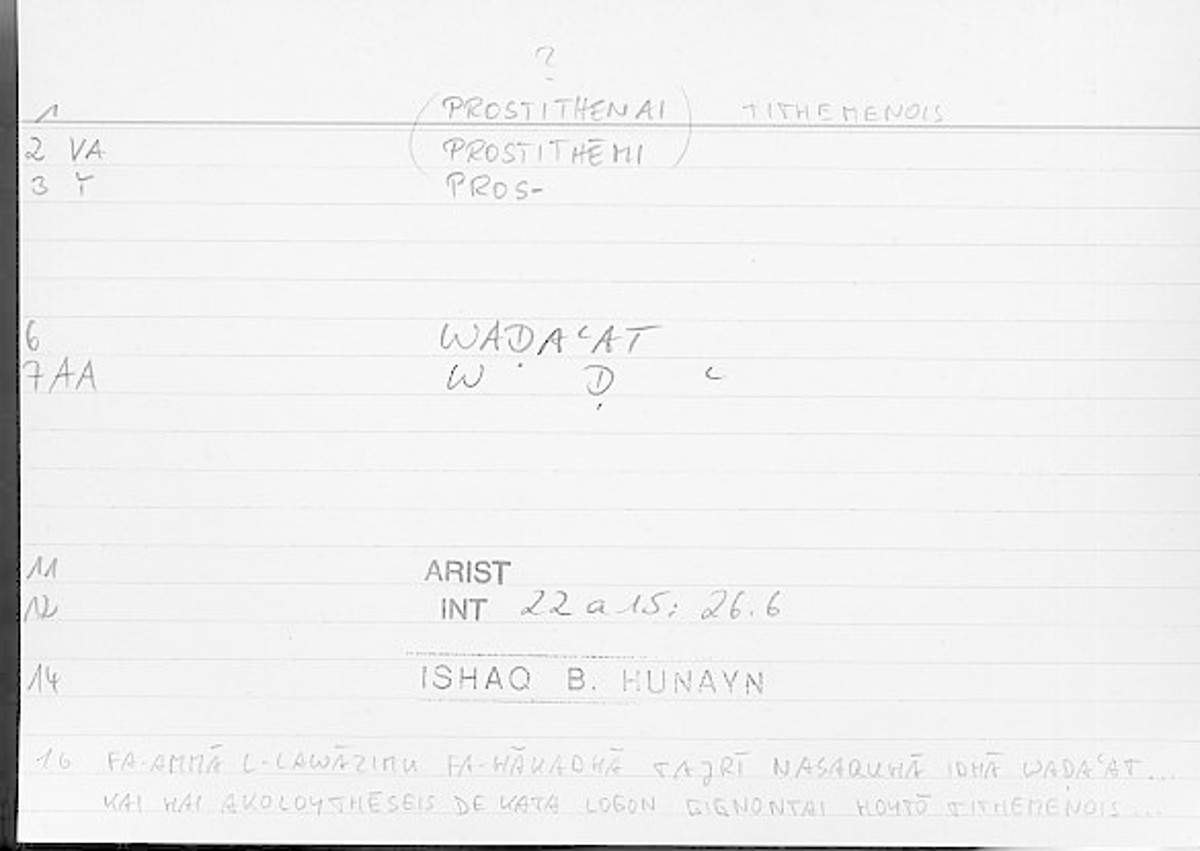 ?
1 (PROSTITHENAI) TITHEMENOIS
2 VA (PROSTITHĒMI)
3 Ť PROS-
6 WAḌAʿAT
7 AA W Ḍ ʿ
11 ARIST
12 INT 22 a 15; 26.6
14 ISHAQ B. HUNAYN
16 FA-AMMĀ L-LAWĀZIMU FA-HĀKADHĀ TAJRĪ NASAQUHĀ IDHĀ WAḌAʿAT...
KAI HAI AKOLOYTHĒSEIS DE KATA LOGON GIGNONTAI HOYTŌ TITHEMENOIS...